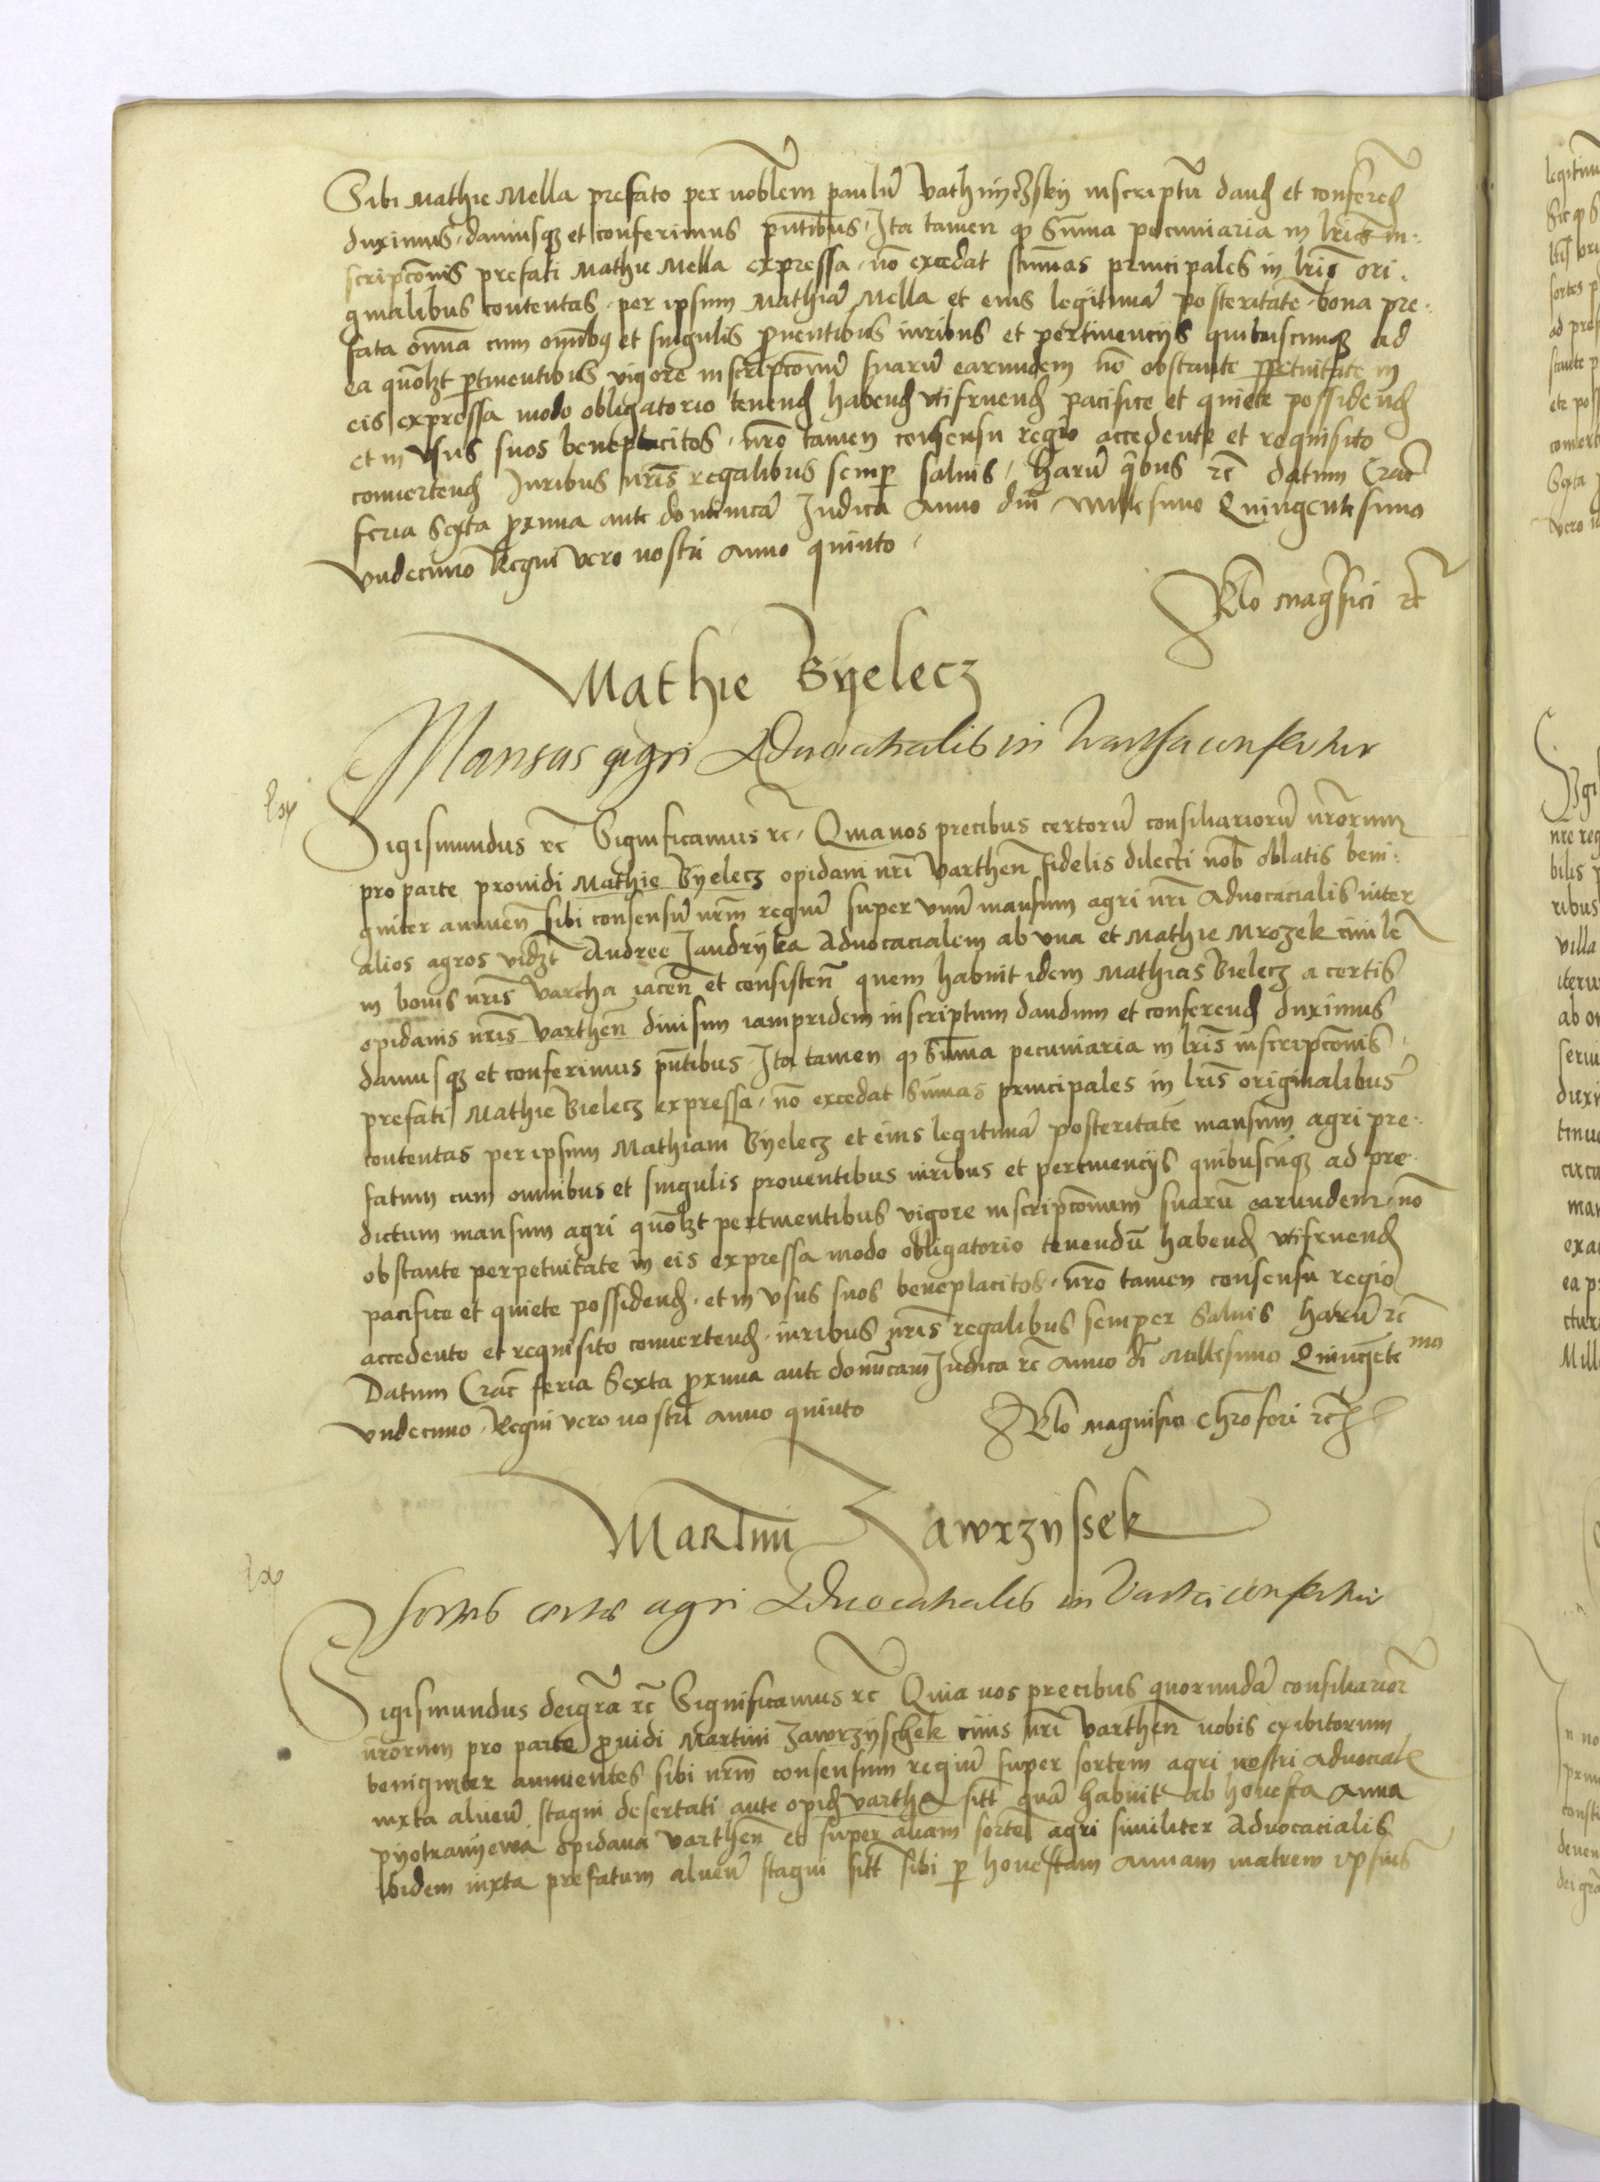 Sibi Mathie Mella prefato per nobłem paulū Vathijczsky inscriptū dand et conferēd
duximus, damusqȝ et conferimus pn̄tibus, Ita tamen qȝ Sūma pecuniaria in lr̄is in-
scripcōnis prefati Mathie Mella expressa, nō excedat sūmas principales in lr̄is ori-
ginalibus contentas, per ipsum Mathiā Mella et eius legitimā posteritatē, bona pre-
fata omīa cum omībȝ et singulis ꝓuentibus iuribus et pertinencijs quibuscunqȝ ad
ea quōlȝt ꝑtinentibus vigore inscripcōnū suarū earundem nō obstante ꝑpetuitate in
eis expressa modo obligatorio tenend habend vtifruend pacifice et quiete possidend
et in vsus suos beneplacitos, nr̄o tamen consensu regio accedente et requisito
conuertend Iuribus nr̄is regalibus semper saluis, Harū qibus rc̄ Datum Crac̄
feria Sexta ꝓxima ante dominicā Iudica Anno dni Millesimo Quingentesimo
vndecimo Regni vero nostri anno quinto,
Rlo magīfici rc̄
Mathie Byelecz
Mansus agri Aduocatialis in Vartha confertur
Sigismundus rc̄ Significamus rc̄, Quia nos precibus certorū consiliariorū nr̄orum
pro parte prouidi Mathie Byelecz opidani nr̄i Varthen̄ fidelis dilecti nob̄ oblatis beni-
gniter annuen̄ sibi consensū nr̄m regiū super vnū mansum agri nr̄i Aduocacialis inter
alios agros vidȝt Andree Jandryka Aduocacialem ab vna et Mathie Mrozek ciuile
in bonis nr̄is Vartha iacen̄ et consisten̄ quem habuit idem Mathias Bielecz a certis
opidanis nr̄is Varthen̄ diuisim iampridem inscriptum dandum et conferend duximus
damusqȝ et conferimus pn̄tibus, Ita tamen qȝ Sūma pecuniaria in lr̄is inscripcōnis
prefati Mathie Bielecz expressa, nō excedat Sūmas principales in lr̄is originalibus
contentas per ipsum Mathiam Byelecz et eius legitimā posteritatē mansum agri pre-
fatum cum omnibus et singulis prouentibus iuribus et pertinencijs quibuscūqȝ ad pre-
dictum mansum agri quōlȝt pertinentibus vigore inscripcōnum suarū earundem, nō
obstante perpetuitate in eis expressa modo obligatorio tenendū habend vtifruend
pacifice et quiete possidend, et in vsus suos beneplacitos, nr̄o tamen consensu regio
accedente et requisito conuertend, iuribus nr̄is regalibus semper Saluis harū rc̄
Datum Crac̄ feria Sexta ꝓxima ante dominicam Iudica rc̄ Anno di Millesimo Quingētemo
vndecimo, Regni vero nostri anno quinto
Rlo magnifici Chrofori rc̄
Martini Zawrzyssek
Sortes certe agri Aduocatialis in Varta confertur
Sigismundus deigrā rc̄ Significamus rc̄ Quia nos precibus quorundā consiliarior̄
nr̄orum pro parte ꝓuidi Martini Zawrzyschek ciuis nr̄i Varthen̄ nobis exibitorum
benigniter annuentes sibi nr̄m consensum regiū super sortem agri nostri aduocial
iuxta alueū stagni desertati ante opid vartha sitt quā habuit ab honesta Anna
pyotranyewa opidana varthen̄ et super aliam sortē agri similiter Aduocacialis
ibidem iuxta prefatum alueū stagni sitt sibi ꝑ honestam Annam matrem ipsius